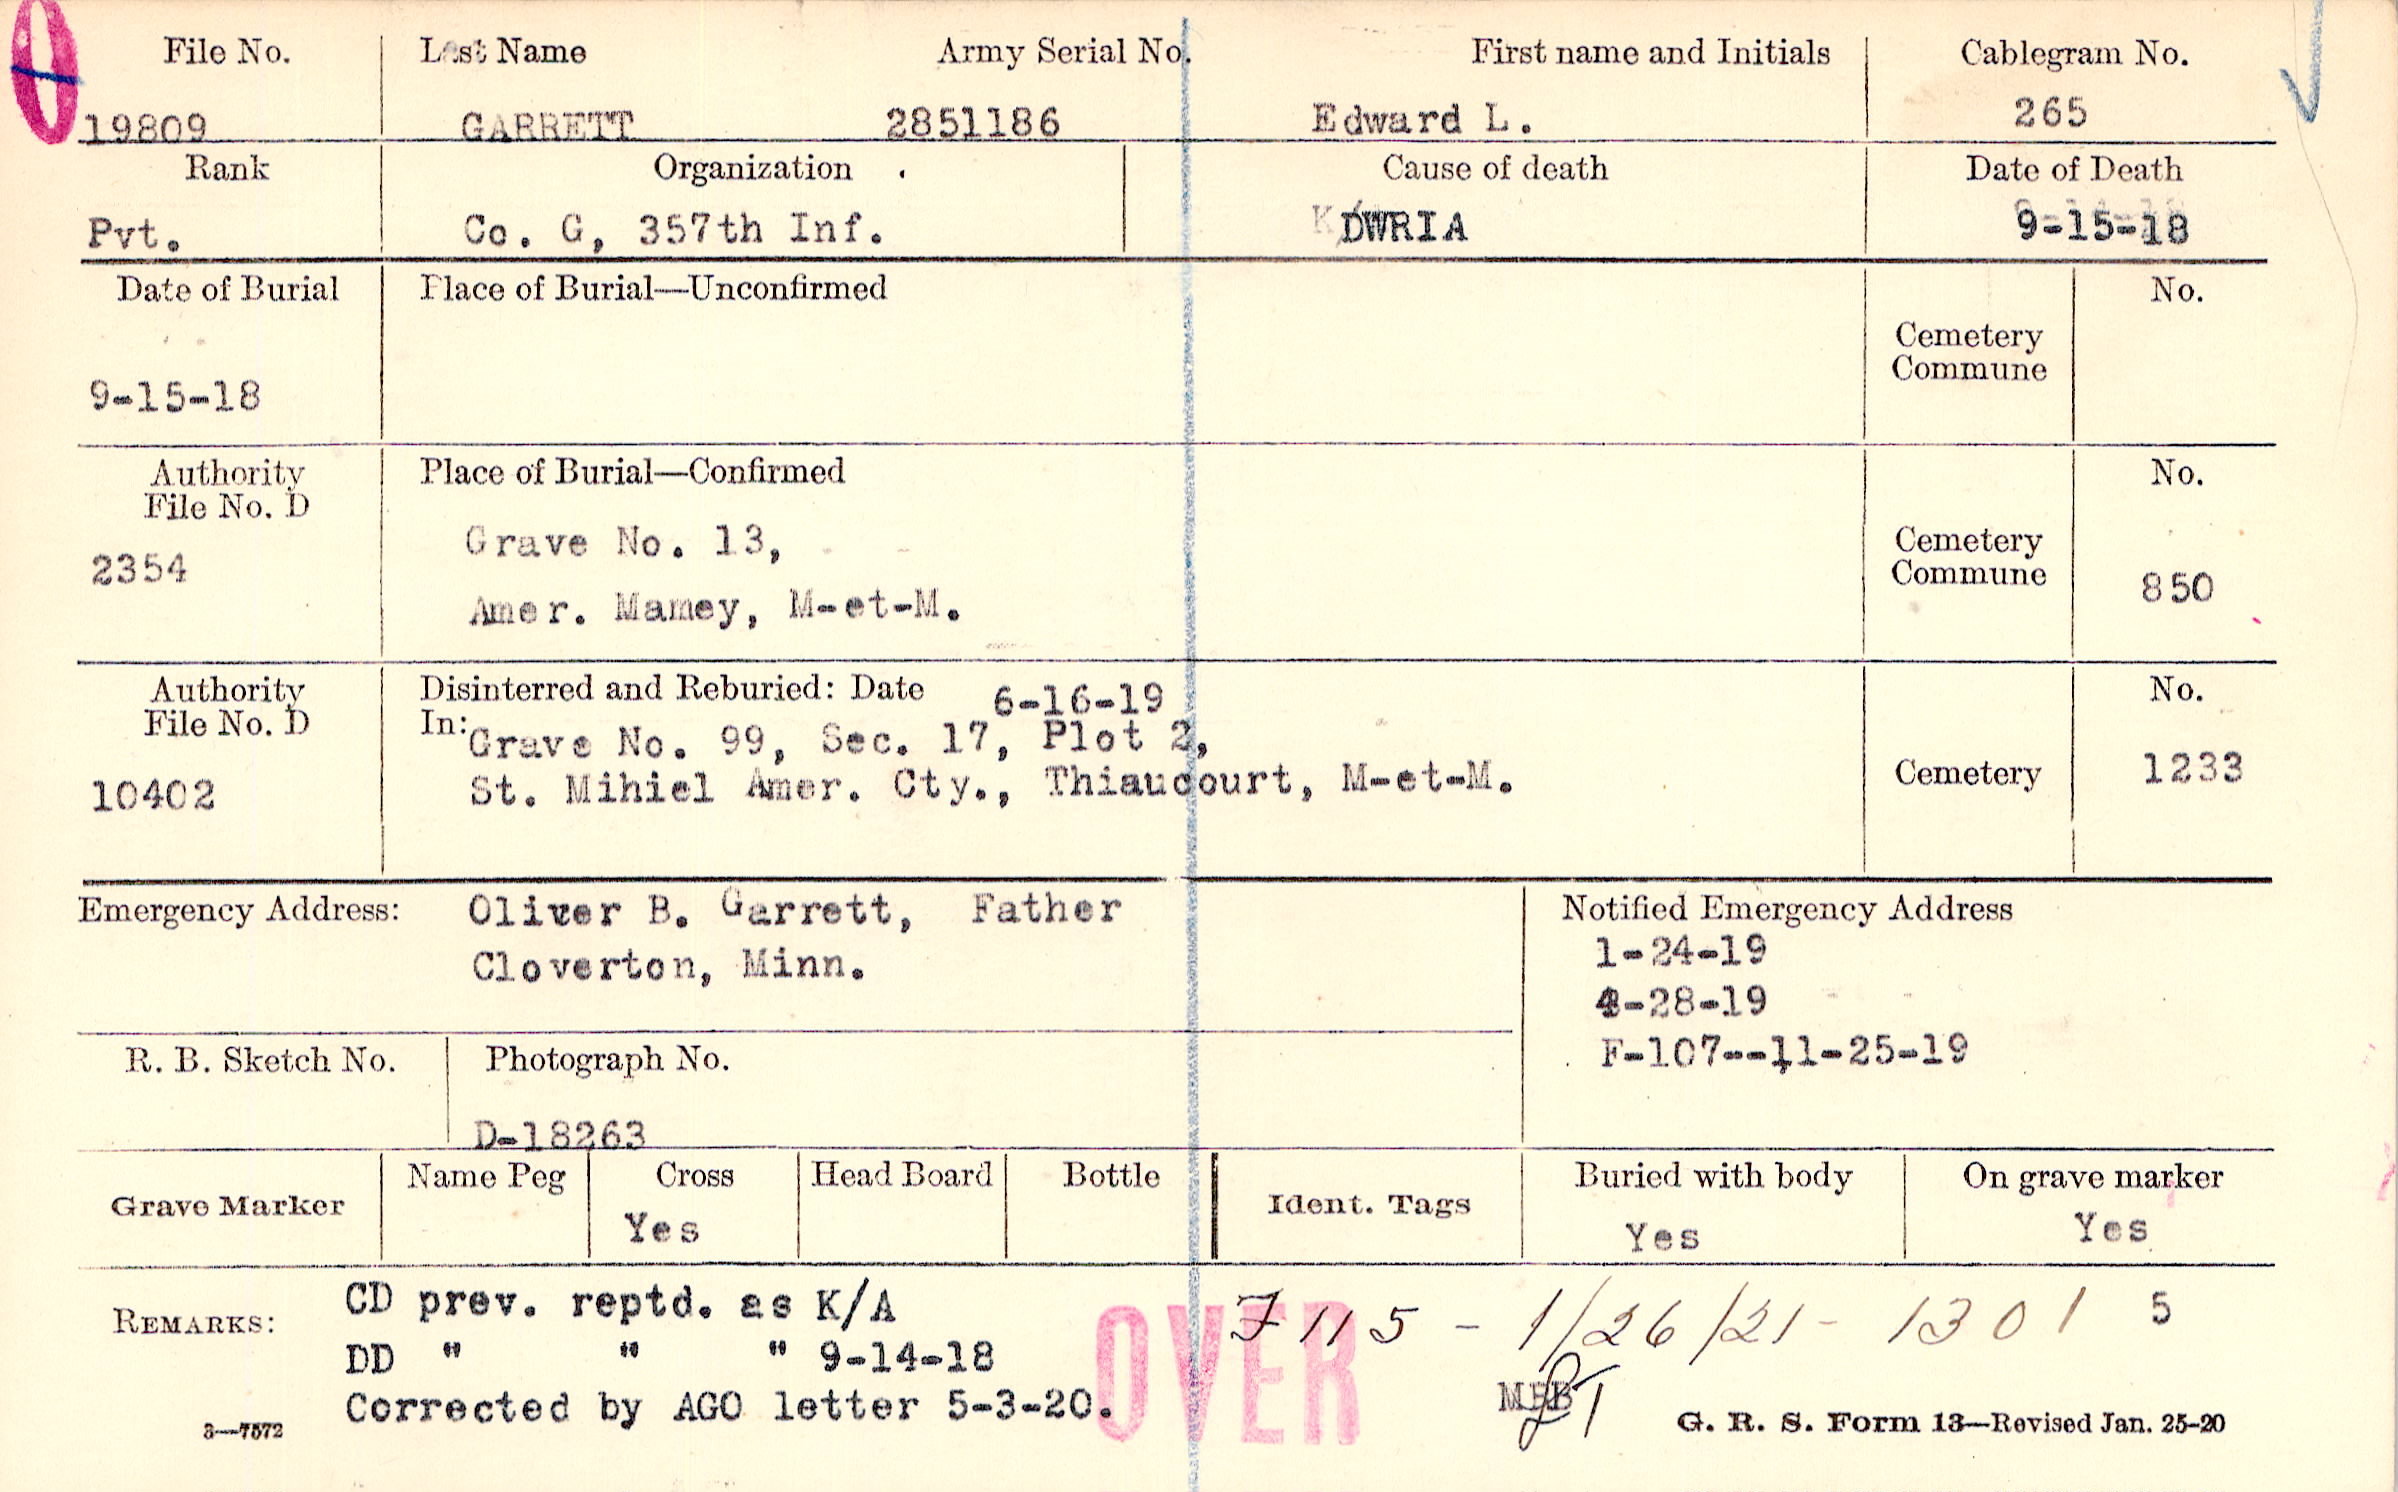 File No. Last Name Army Serial No. First name and Initials Cablegram No.
19809 GARRETT 2851186 Edward L. 265
Rank Organization Cause of death Date of Death
Pvt. Co. G, 357th Inf. DWRIA 9-15-18
Date of Burial Place of Burial—Unconfirmed No.
Cemetery
Commune
9-15-18
Authority Place of Burial—Confirmed No.
File No. D
Grave No. 13, Cemetery
2354 Commune 850
Amer. Mamey, M-et-M.
Authority Disinterred and Reburied: Date 6-16-19 No.
File No. D In: Grave No. 99, Sec. 17, Plot 2,
10402 St. Mihiel Amer. Cty., Thiaucourt, M-et-M. Cemetery 1233
Emergency Address: Oliver B. Garrett, Father Notified Emergency Address
Cloverton, Minn. 1-24-19
4-28-19
F-107--11-25-19
R. B. Sketch No. Photograph No.
D-18263
Grave Marker Name Peg Cross Head Board Bottle Ident. Tags Buried with body On grave marker
Yes Yes Yes
REMARKS: CD prev. reptd. as K/A 7115 - 1/26/21 - 1301 5
DD " " " 9-14-18
Corrected by AGO letter 5-3-20. OVER
3—7572 G. R. S. Form 13—Revised Jan. 25-20